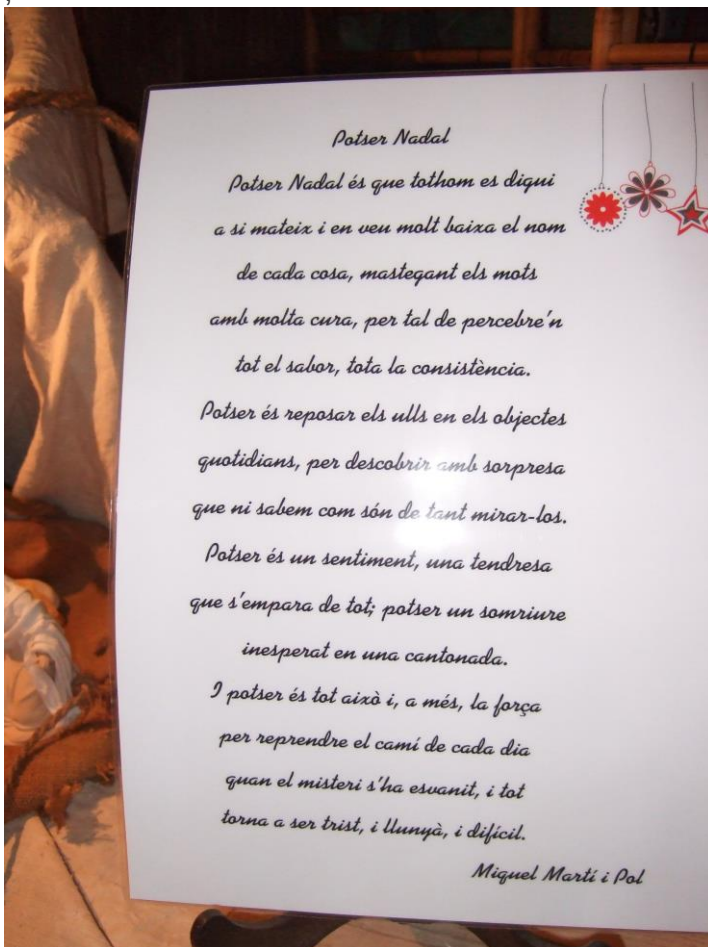 Potser Nadal
Potser Nadal és que tothom es digui
a si mateix i en veu molt baixa el nom
de cada cosa, mastegant els mots
amb molta cura, per tal de percebre'n
tot el sabor, tota la consistència.
Potser és reposar els ulls en els objectes
quotidians, per descobrir amb sorpresa
que ni sabem com són de tant mirar-los.
Potser és un sentiment, una tendresa
que s'empara de tot; potser un somriure
inesperat en una cantonada.
I potser és tot això i, a més, la força
per reprendre el camí de cada dia
quan el misteri s'ha esvanit, i tot
torna a ser trist, i llunyà, i difícil.
Miquel Martí i Pol